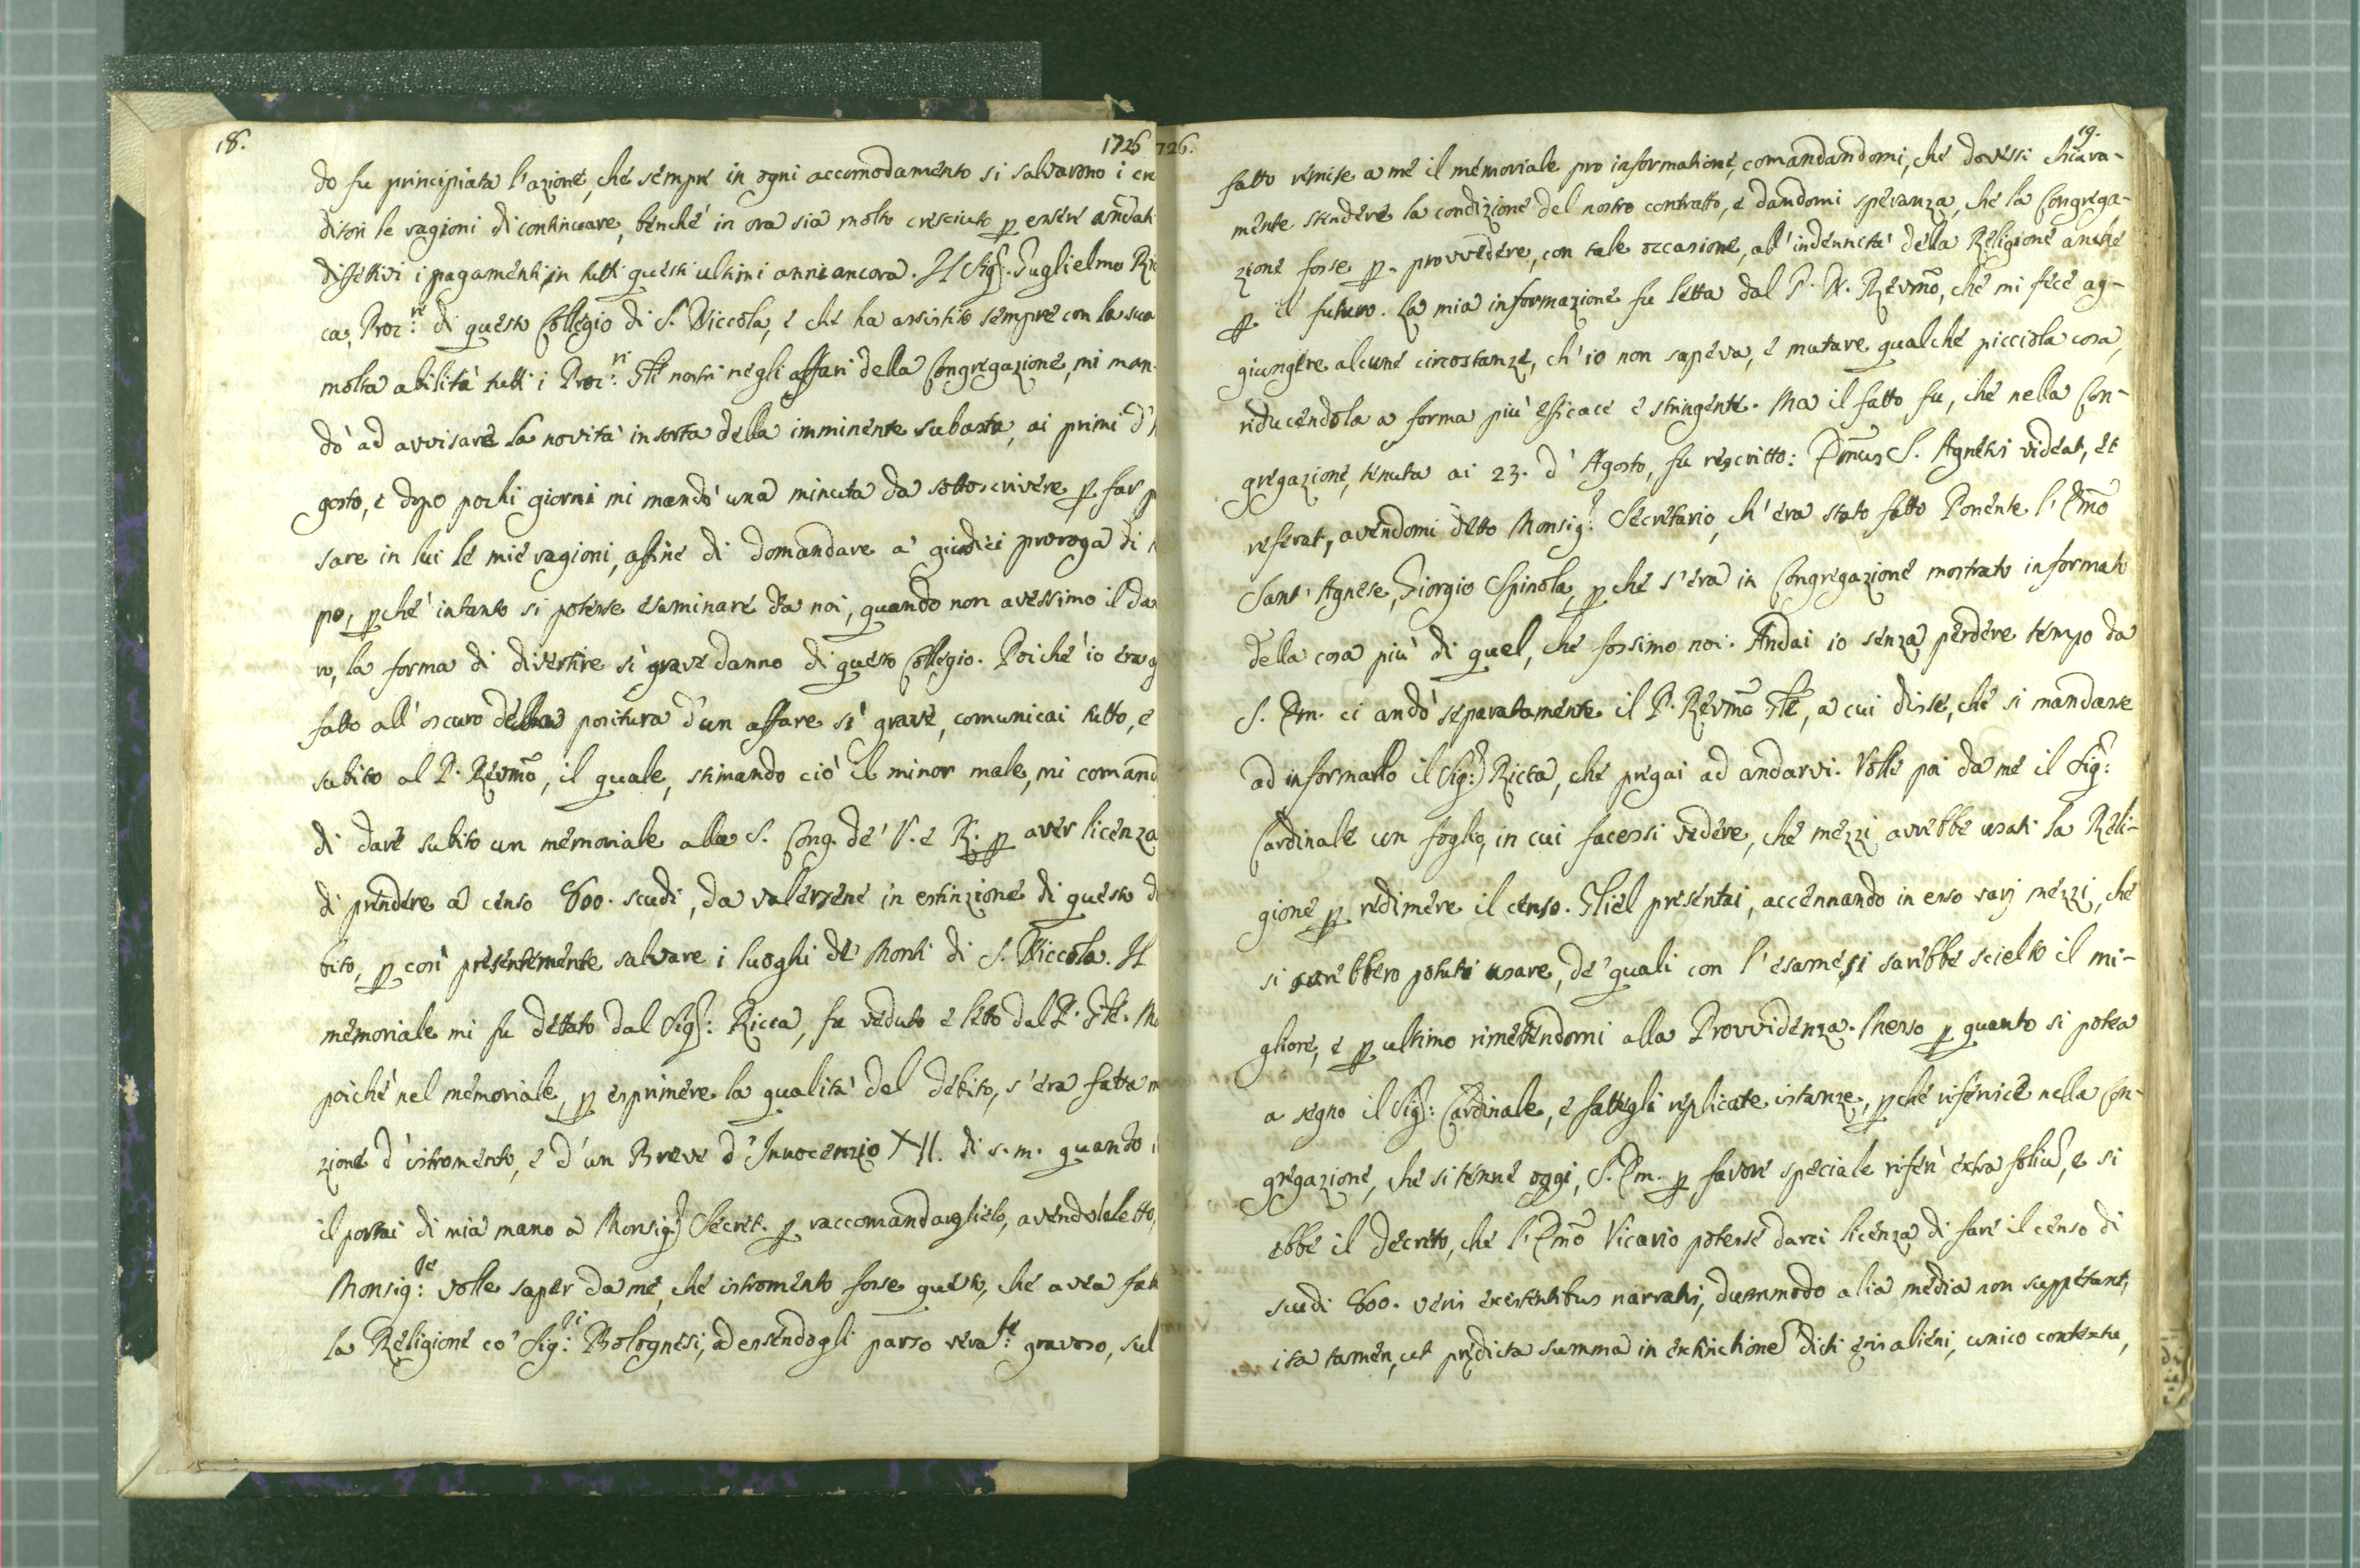 18.
1726
do fu principiata l'azione, che sempre in ogni accomodamento si salvarono i cre
ditori le ragioni di continuare, benché in ora sia molto cresciuto p essere andati
difettivi i pagamenti in tutti questi ultimi anni ancora. Il Sigr. Guglielmo Ric
ca, Procre: di questo Collegio di S. Niccola, e che ha assistito sempre con la sua
molta abilità tutti i Procri: Gñli nostri negli affari della Congregazione, mi man-
dò ad avvisare la novità insorta della imminente subasta, ai primi d'A
gosto, e dopo pochi giorni mi mandò una minuta da sottoscrivere p far p
sare in lui le mie ragioni, affine di domandare a' giudici proroga di
po, pché intanto si potesse esaminare da noi, quando non avessimo il dan
ro, la forma di divertire sì grave danno di questo Collegio. Poiché io era
fatto all'oscuro della positura d'un affare sì grave, comunicai tutto, e
subito al P. Revmo, il quale, stimando ciò il minor male, mi comand
di dare subito un memoriale alla S. Cong. de' V. e R. p aver licenza
di prendere a censo 800. scudi, da valersene in estinzione di questo de
bito, p così presentemente salvare i luoghi de' Monti di S. Niccola. Il
memoriale mi fu dettato dal Sigr: Ricca, fu veduto e letto dal P. Gñle. Ma
poiché nel memoriale, p esprimere la qualità del debito, s'era fatta m
zione d'istromento, e d'un Breve d'Innocenzio XII. di s. m. quando i
il portai di mia mano a Monsigr Secret. p raccomandarglielo, avendolo letto,
Monsigre: volle saper da me, che istromento fosse questo, che avea fatt
la Religione co' Sigri: Bolognesi, ed essendogli parso verate: gravoso, sul
726.
19.
fatto remise a me il memoriale pro informatione, comandandomi, che dovessi chiara-
mente stendere la condizione del nostro contratto, e dandomi speranza, che la Congrega-
zione forse p. provvedere, con tale occasione, all'indennità della Religione anche
p il futuro. La mia informazione fu letta dal P. N. Revmo, che mi fece ag-
giungere alcune circostanze, ch'io non sapeva, e mutare qualche picciola cosa,
riducendola a forma più efficace e stringente. Ma il fatto fu, che nella Con-
gregazione, tenuta ai 23. d'Agosto, fu rescritto: Emus S. Agnetis videat, et
referat, avendomi detto Monsigr: Secretario, ch'era stato fatto Ponente l'Emo
Sant'Agnese, Giorgio Spinola, pché s'era in Congregazione mostrato informato
della cosa più di quel, che fossimo noi. Andai io senza perdere tempo da
S. Em. ci andò separatamente il P. Revmo Gñle, a cui disse, che si mandasse
ad informarlo il Sigr: Ricca, che pregai ad andarvi. Volle poi da me il Sigr:
Cardinale un foglio, in cui facessi vedere, che mezzi avrebbe usati la Reli-
gione p redimere il censo. Gliel presentai, accennando in esso varj mezzi, che
si sarebbero potuti usare, de' quali con l'esame si sarebbe scielto il mi-
gliore, e p ultimo rimettendomi alla Provvidenza. Messo p quanto si potea
a segno il Sigr: Cardinale, e fattegli replicate istanze, pché riferisce nella Con-
gregazione, che si tenne oggi, S. Em. p favore speciale riferì extra foliũ, e si
ebbe il decreto, che l'Emo Vicario potesse darci licenza di fare il censo di
scudi 800. veris existentibus narratis, dummodo alia media non suppetant,
ita tamen, ut prędicta summa in extinctionē dicti ęris alieni, unico contextu,